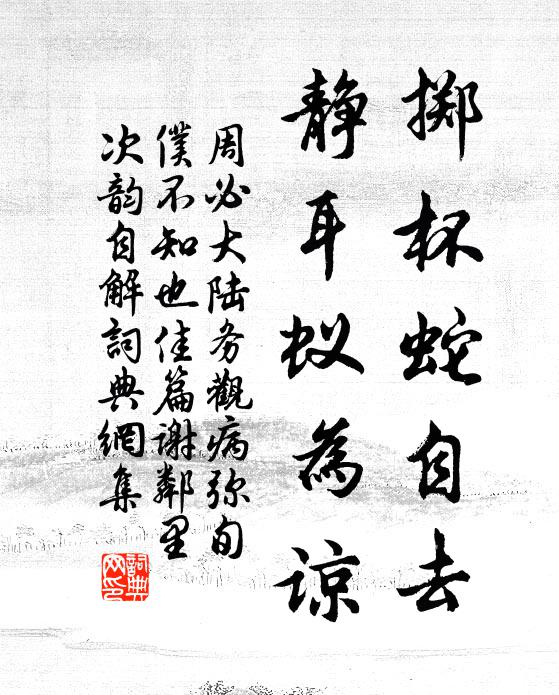 掷杯蛇自去
静耳蚁为谅
周必大陆务觀病弥旬
僕不知也佳篇謝鄰里
次韵自解詞典網集
詞典
网印